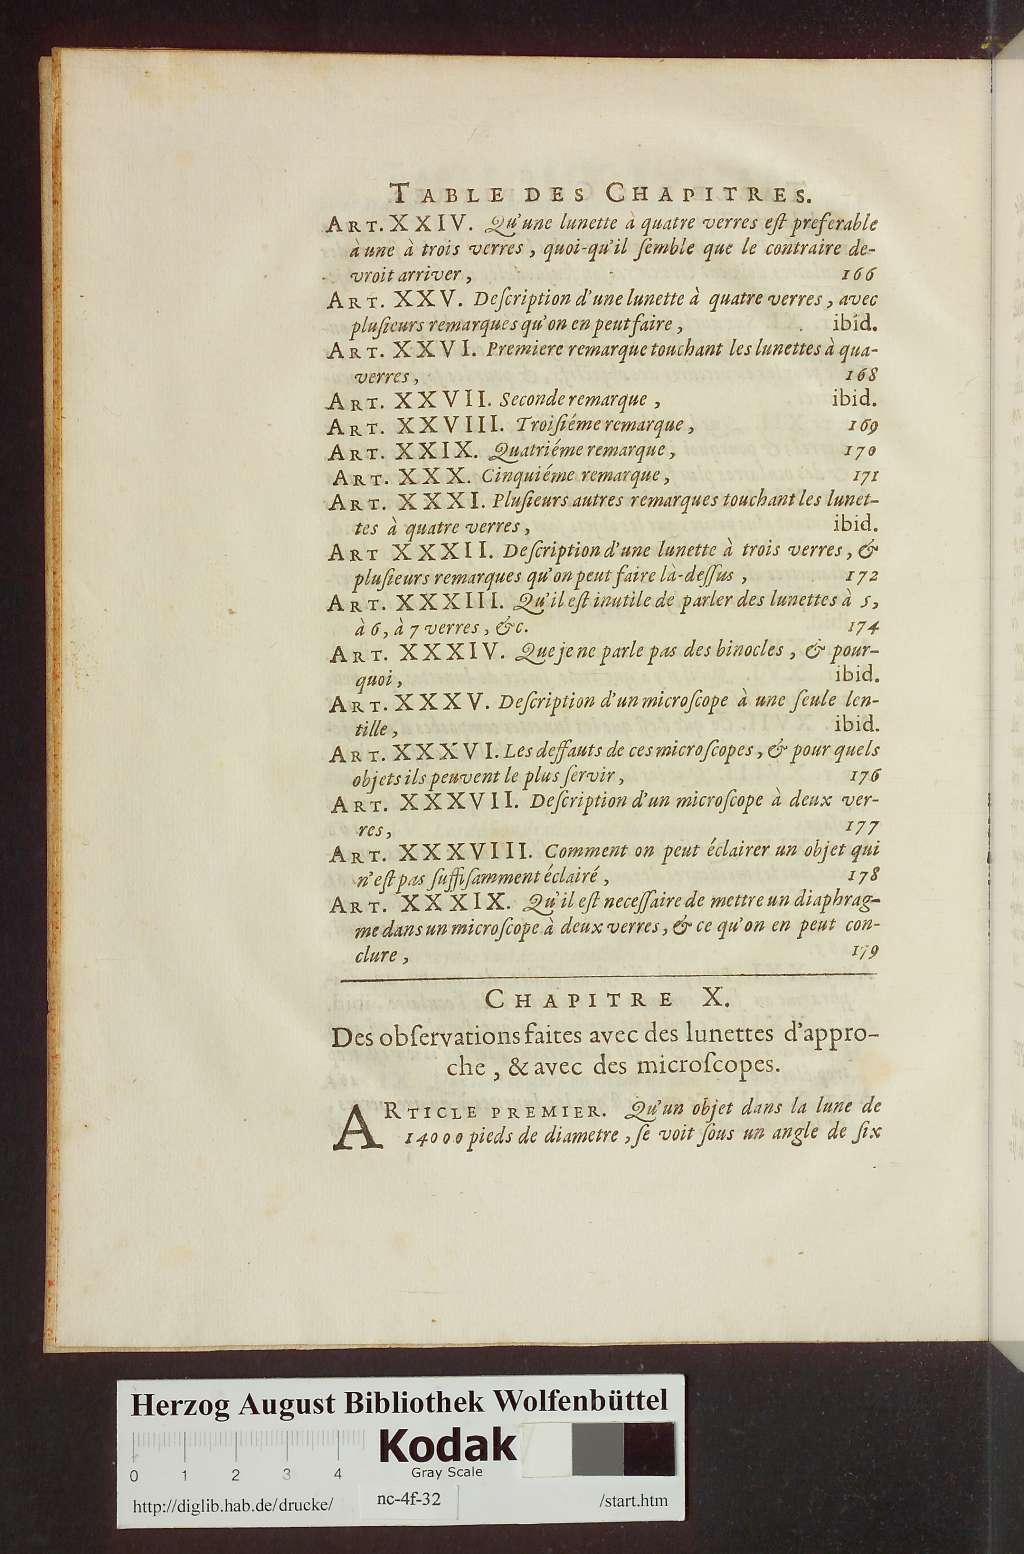 TABLE DES CHAPITRES.
ART. XXIV. Qu'une lunette à quatre verres eſt preferable
à une à trois verres, quoi-qu'il ſemble que le contraire de-
vroit arriver, 166
ART. XXV. Deſcription d'une lunette à quatre verres, avec
pluſieurs remarques qu'on en peut faire, ibid.
ART. XXVI. Premiere remarque touchant les lunettes à qua-
verres, 168
ART. XXVII. Seconde remarque, ibid.
ART. XXVIII. Troiſiéme remarque, 169
ART. XXIX. Quatriéme remarque, 170
ART. XXX. Cinquiéme remarque, 171
ART. XXXI. Pluſieurs autres remarques touchant les lunet-
tes à quatre verres, ibid.
ART XXXII. Deſcription d'une lunette à trois verres, &
pluſieurs remarques qu'on peut faire là-deſſus, 172
ART. XXXIII. Qu'il eſt inutile de parler des lunettes à 5,
à 6, à 7 verres, &c. 174
ART. XXXIV. Que je ne parle pas des binocles, & pour-
quoi, ibid.
ART. XXXV. Deſcription d'un microſcope à une ſeule len-
tille, ibid.
ART. XXXVI. Les deffauts de ces microſcopes, & pour quels
objets ils peuvent le plus ſervir, 176
ART. XXXVII. Deſcription d'un microſcope à deux ver-
res, 177
ART. XXXVIII. Comment on peut éclairer un objet qui
n'eſt pas ſuffiſamment éclairé, 178
ART. XXXIX. Qu'il eſt neceſſaire de mettre un diaphrag-
me dans un microſcope à deux verres, & ce qu'on en peut con-
clure, 179
CHAPITRE X.
Des obſervations faites avec des lunettes d'appro-
che, & avec des microſcopes.
ARTICLE PREMIER. Qu'un objet dans la lune de
14000 pieds de diametre, ſe voit ſous un angle de ſix
Herzog August Bibliothek Wolfenbüttel
Kodak
Gray Scale
0 1 2 3 4
http://diglib.hab.de/drucke/ nc-4f-32 /start.htm